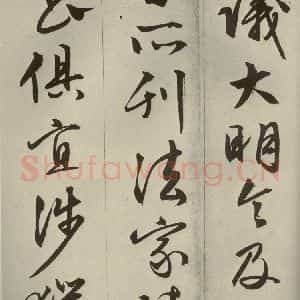 議大明令及
所刊法家
俱宜涉獵
Shufawang.CN